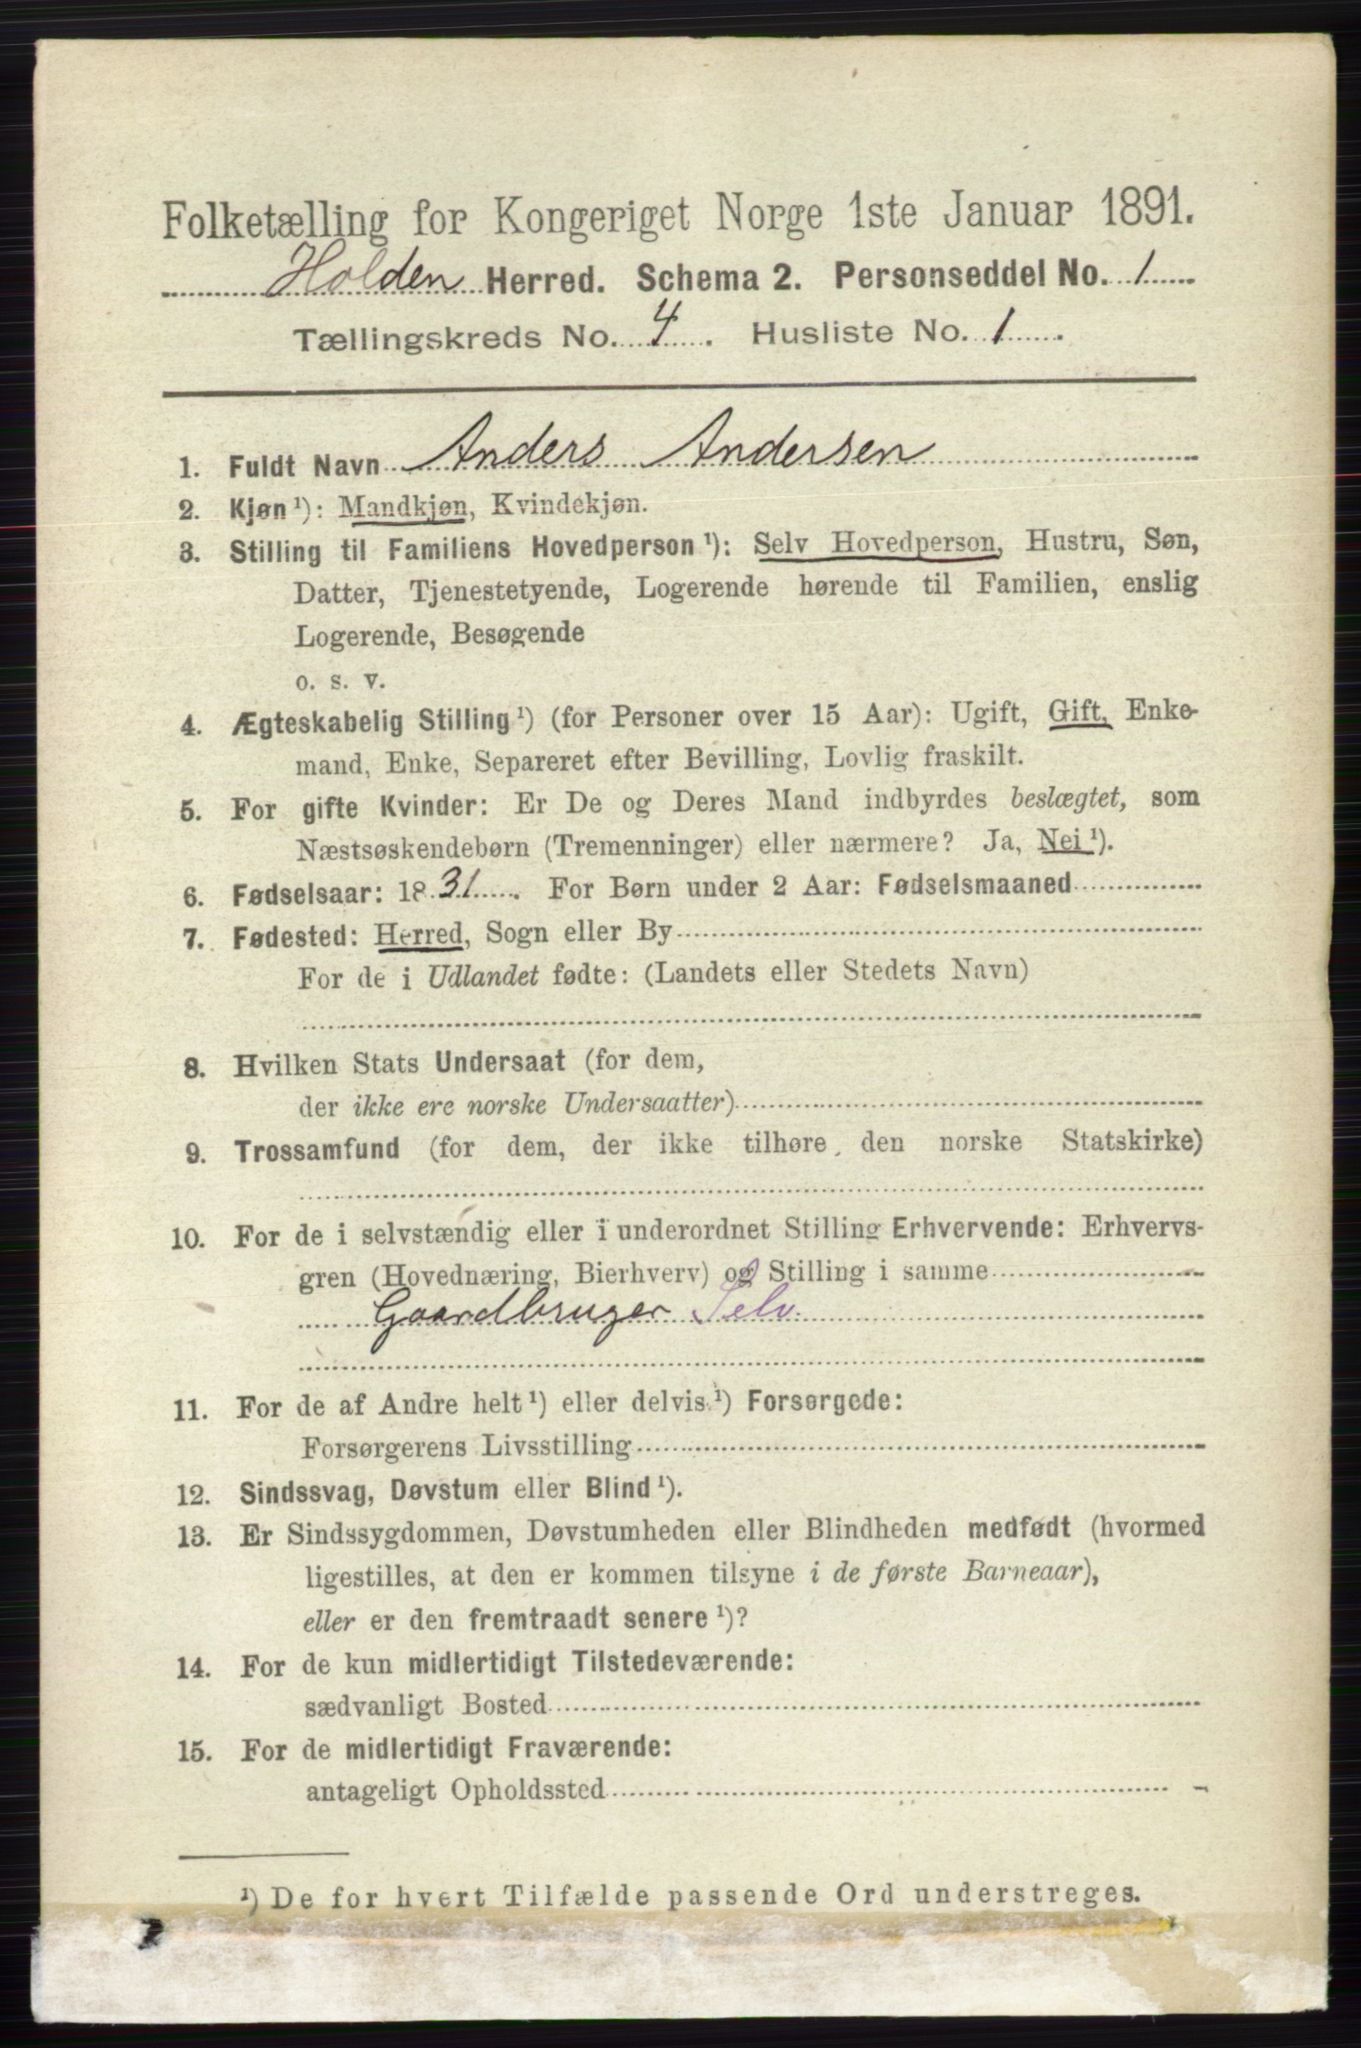 Folketælling for Kongeriget Norge 1ste Januar 1891.
Holden Herred. Schema 2. Personseddel No. 1
Tællingskreds No. 4. Husliste No. 1.
1. Fuldt Navn Anders Andersen
2. Kjøn ¹): Mandkjøn, Kvindekjøn.
3. Stilling til Familiens Hovedperson ¹): Selv Hovedperson, Hustru, Søn,
Datter, Tjenestetyende, Logerende hørende til Familien, enslig
Logerende, Besøgende
o. s. v.
4. Ægteskabelig Stilling ¹) (for Personer over 15 Aar): Ugift, Gift, Enke-
mand, Enke, Separeret efter Bevilling, Lovlig fraskilt.
5. For gifte Kvinder: Er De og Deres Mand indbyrdes beslægtet, som
Næstsøskendebørn (Tremenninger) eller nærmere? Ja, Nei ¹).
6. Fødselsaar: 1831. For Børn under 2 Aar: Fødselsmaaned
7. Fødested: Herred, Sogn eller By
For de i Udlandet fødte: (Landets eller Stedets Navn)
8. Hvilken Stats Undersaat (for dem,
der ikke ere norske Undersaatter)
9. Trossamfund (for dem, der ikke tilhøre den norske Statskirke)
10. For de i selvstændig eller i underordnet Stilling Erhvervende: Erhvervs-
gren (Hovednæring, Bierhverv) og Stilling i samme
Gaardbruger Selv.
11. For de af Andre helt ¹) eller delvis ¹) Forsørgede:
Forsørgerens Livsstilling
12. Sindssvag, Døvstum eller Blind ¹).
13. Er Sindssygdommen, Døvstumheden eller Blindheden medfødt (hvormed
ligestilles, at den er kommen tilsyne i de første Barneaar),
eller er den fremtraadt senere ¹)?
14. For de kun midlertidigt Tilstedeværende:
sædvanligt Bosted
15. For de midlertidigt Fraværende:
antageligt Opholdssted
¹) De for hvert Tilfælde passende Ord understreges.